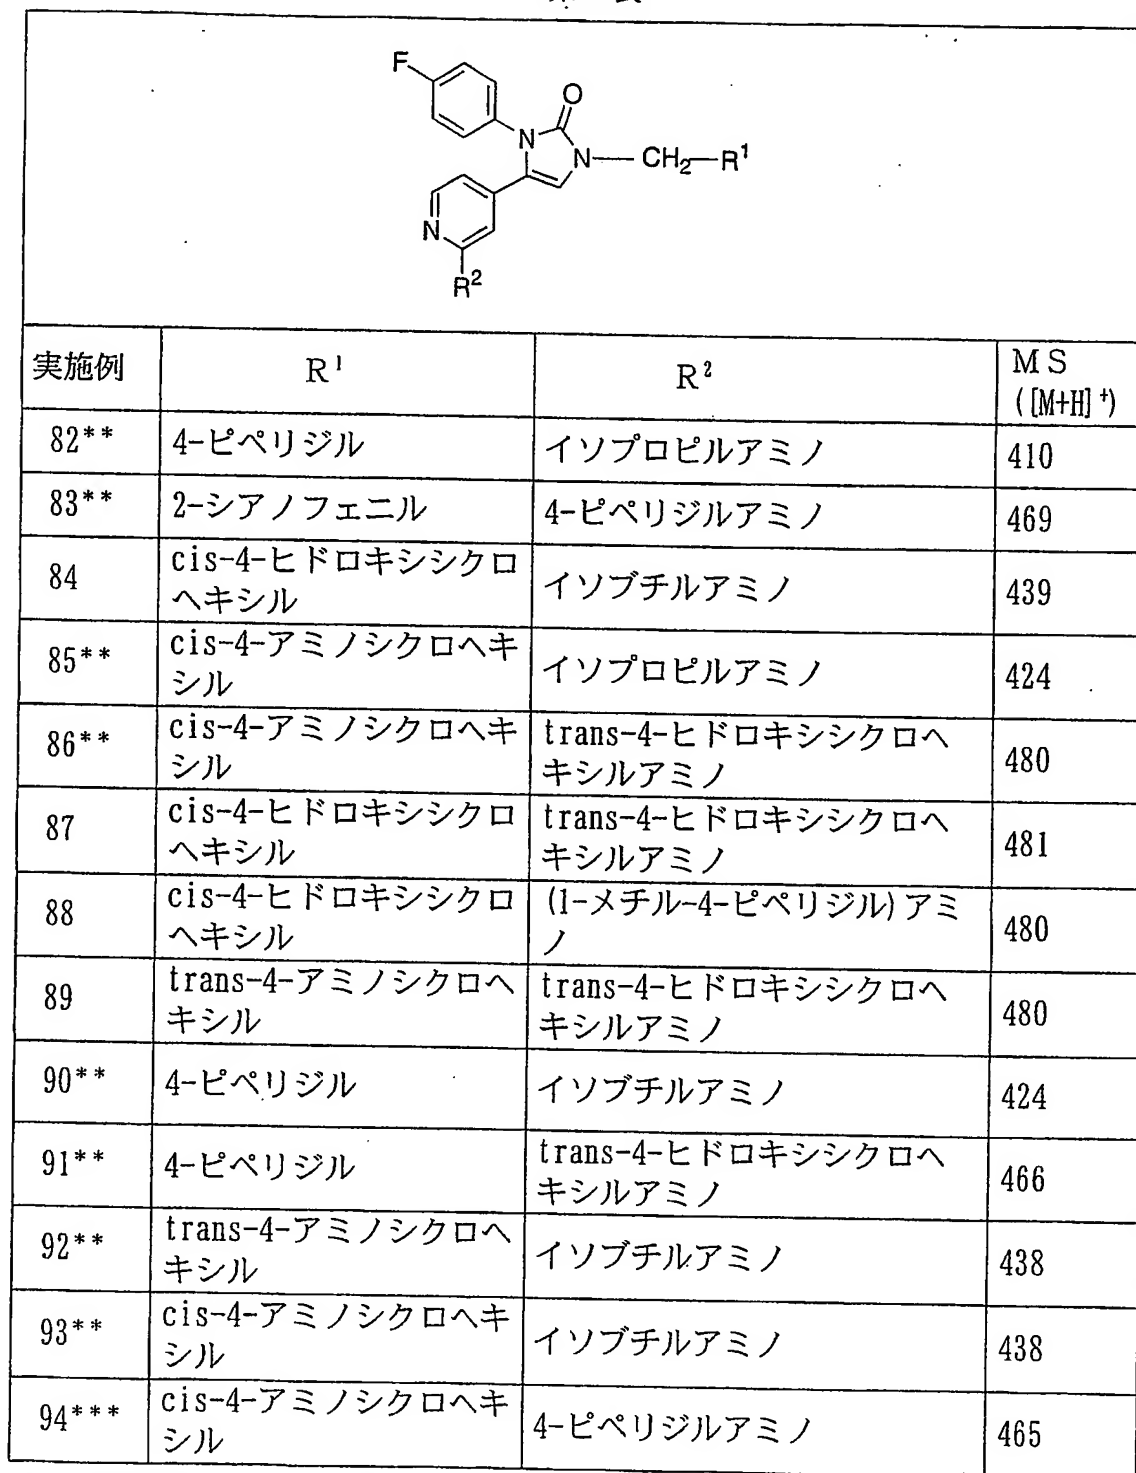 F
O
N
N—CH₂—R¹
N
R²
実施例 R¹ R² MS
([M+H]⁺)
82** 4-ピペリジル イソプロピルアミノ 410
83** 2-シアノフェニル 4-ピペリジルアミノ 469
84 cis-4-ヒドロキシシクロ
ヘキシル イソブチルアミノ 439
85** cis-4-アミノシクロヘキ
シル イソプロピルアミノ 424
86** cis-4-アミノシクロヘキ
シル trans-4-ヒドロキシシクロヘ
キシルアミノ 480
87 cis-4-ヒドロキシシクロ
ヘキシル trans-4-ヒドロキシシクロヘ
キシルアミノ 481
88 cis-4-ヒドロキシシクロ
ヘキシル (1-メチル-4-ピペリジル)アミ
ノ 480
89 trans-4-アミノシクロヘ
キシル trans-4-ヒドロキシシクロヘ
キシルアミノ 480
90** 4-ピペリジル イソブチルアミノ 424
91** 4-ピペリジル trans-4-ヒドロキシシクロヘ
キシルアミノ 466
92** trans-4-アミノシクロヘ
キシル イソブチルアミノ 438
93** cis-4-アミノシクロヘキ
シル イソブチルアミノ 438
94*** cis-4-アミノシクロヘキ
シル 4-ピペリジルアミノ 465